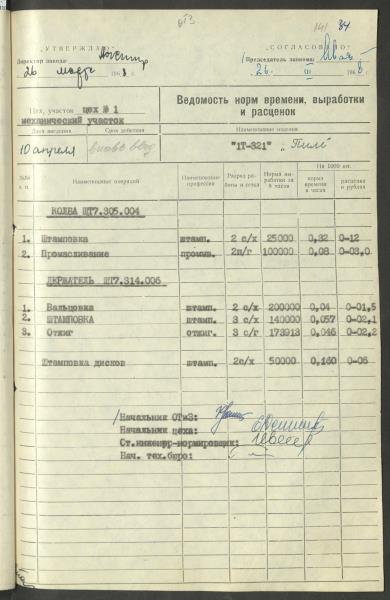 ОТЗ
141 84
„УТВЕРЖДАЮ" „СОГЛАСОВАНО"
Директор завода: Председатель завкома:
26 марта 1968 г. 26. III 1968 г.
Цех, участок цех № 1
механический участок
Ведомость норм времени, выработки и расценок
Дата введения Срок действия Наименование изделия
10 апреля вновь ввод "1Т-321"
№№ п. п. Наименование операций Наименование профессии Разряд работы и сетка Норма выработки за 8 часов На 1000 шт. норма времени в часах расценка в рублях
КОЛБА ЩТ7.305.004
1. Штамповка штамп. 2 с/х 25000 0,32 0-12
2. Промасливание промыв. 2ц/г 100000 0,08 0-03,0
ДЕРЖАТЕЛЬ ЩТ7.314.006
1. Вальцовка штамп. 2 с/х 200000 0,04 0-01,5
2. ШТАМПОВКА штамп. 3 с/х 140000 0,057 0-02,1
3. Отжиг отжиг. 3 с/г 173913 0,046 0-02,2
Штамповка дисков штамп. 2с/х 50000 0,160 0-06
Начальник ОТиЗ:
Начальник цеха:
Ст.инженер-нормировщик:
Нач. тех.бюро: